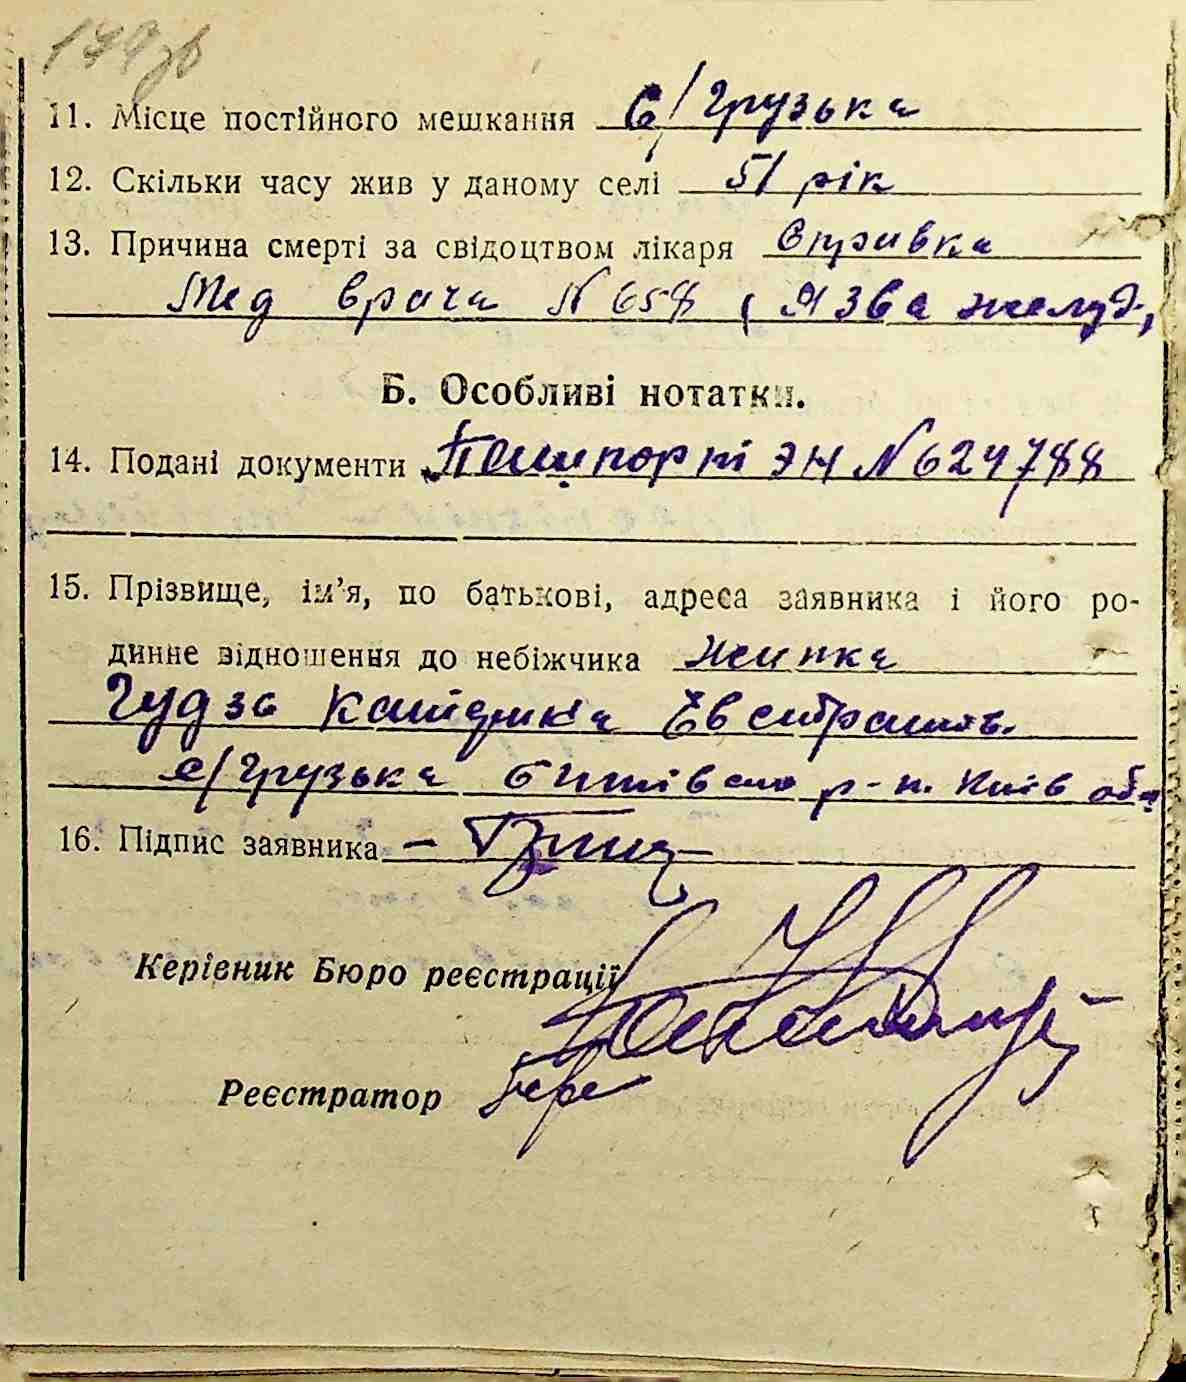 179зв
11. Місце постійного мешкання С/Грузька
12. Скільки часу жив у даному селі 51 рік
13. Причина смерті за свідоцтвом лікаря Справка
Мед врача N 658 ( Язва желуд,
Б. Особливі нотатки.
14. Подані документи Пашпорт ЭН N 624788
15. Прізвище, ім'я, по батькові, адреса заявника і його ро-
динне відношення до небіжчика жинка
Гудзь
с/Грузька р-н. Київ обл
16. Підпис заявника
Керівник Бюро реєстрації
Реєстратор